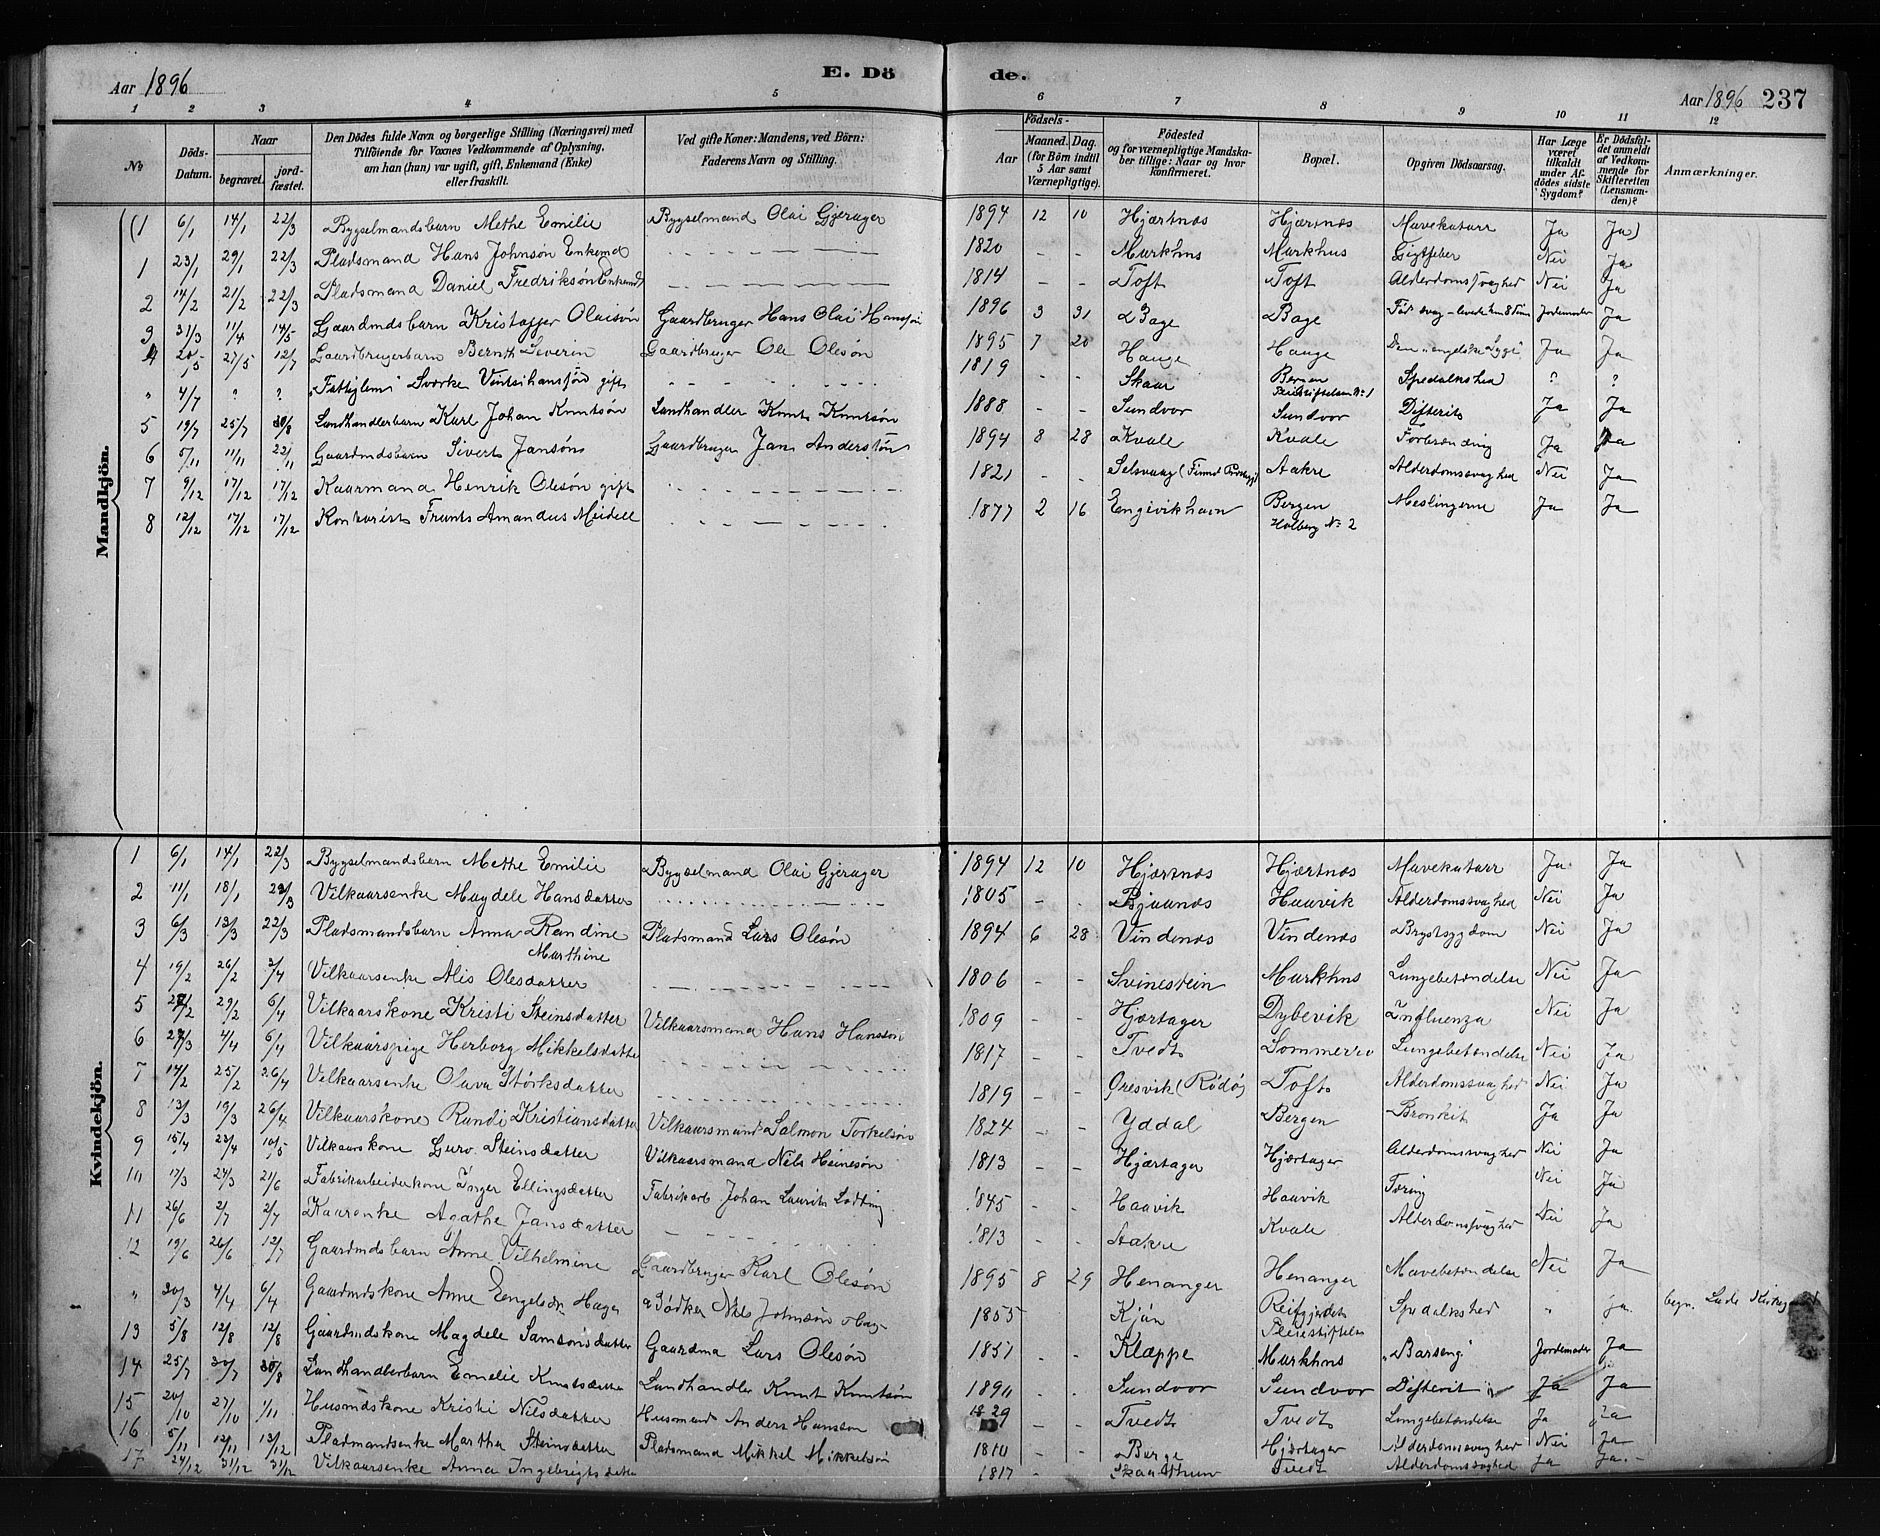 Aar 1896
E. Dö
de.
Aar 1896 237
1 2 3 4 5 6 7 8 9 10 11 12
№
Döds-Datum.
Naar
begravet.
jord-fæstet.
Den Dödes fulde Navn og borgerlige Stilling (Næringsvei) med
Tilföiende for Voxnes Vedkommende af Oplysning,
om han (hun) var ugift, gift, Enkemand (Enke)
eller fraskilt.
Ved gifte Koner: Mandens, ved Börn:
Faderens Navn og Stilling.
Födsels-
Aar
Maaned. Dag.
(for Börn indtil
5 Aar samt
Værnepligtige).
Födested
og for værnepligtige Mandska-
ber tillige: Naar og hvor
konfirmeret.
Bopæl.
Opgiven Dödsaarsag.
Har Læge
været
tilkaldt
under Af-
dödes sidste
Sygdom?
Er Dödsfal-
det anmeldt
af Vedkom-
mende for
Skifteretten
(Lensman-
den)?
Anmærkninger.
Mandkjön.
(1 6/1 14/1 22/3 Bygselmandsbarn Methe Emilie Bygselmand Olai Gjerager 1894 12 10 Hjærtnes Hjærtnes Mavekatarr Ja Ja)
1 23/1 29/1 22/3 Pladsmand Hans Johnsön Enkemd — 1820 - - Markhus Markhus Gigtfeber Nei Ja
2 14/2 21/2 22/3 Pladsmand Daniel Fredriksön Enkemd — 1814 - - Toft Toft Alderdomssvaghed Nei Ja
3 31/3 11/4 14/5 Gaardmdsbarn Kristoffer Olaisön Gaardbruger Hans Olai Hansön 1896 3 31 Bage Bage Född svag - levede kun 8 Timer Jordemoder Ja
4 20/5 27/5 12/7 Gaardbrugerbarn Bernth Severin Gaardbruger Ole Olesön 1895 7 20 Hauge Hauge Den "engelske Syge" Ja Ja
" 4/7 ? ? "Fattiglem" Sverke gift — 1819 - - Skaar Bergen Pleiestiftelsen № 1 Spedalskhed ? ?
5 19/7 25/7 30/8 Landhandlerbarn Karl Johan Knutsön Landhandler Knut Knutsön 1888 - - Sundvor Sundvor Difterit Ja Ja
6 5/11 11/11 22/11 Gaardmdsbarn Sivert Jansön Gaardbruger Jan Anderssön 1894 8 28 Kvale Kvale Forbrænding Ja Ja
7 9/12 17/12 17/12 Kaarmand Henrik Olesön gift — 1821 - - Selsvaag Aakre Alderdomssvaghed Nei Ja
8 12/12 17/12 17/12 Kontorist Frants Amandus Meidell — 1877 2 16 Engivikhavn Bergen Holberg № 2 Meslingerne Ja Ja
Kvindekjön.
1 6/1 14/1 22/3 Bygselmandsbarn Methe Emilie Bygselmand Olai Gjerager 1894 12 10 Hjærtnes Hjærtnes Mavekatarr Ja Ja
2 11/1 18/1 22/3 Vilkaarsenke Magdele Hansdatter — 1805 - - Bjaanes Haavik Alderdomssvaghed Nei Ja
3 6/3 13/3 22/3 Pladsmandsbarn Anna Randine Marthine Pladsmand Lars Olesön 1894 6 28 Vindenes Vindenes Brystsygdom Nei Ja
4 19/2 26/2 2/4 Vilkaarsenke Alis Olesdatter — 1806 - - Svinestein Markhus Lungebetændelse Nei Ja
5 22/2 29/2 6/4 Vilkaarskone Kristi Steinsdatter Vilkaarsmand Hans Hansön 1809 - - Hjærtager Dybevik Influenza Nei Ja
6 27/3 4/4 6/4 Vilkaarspige Herborg Mikkelsdatter — 1817 - - Tvedt Sommerro Lungebetændelse Nei Ja
7 14/2 25/2 26/4 Vilkaarsenke Olava Störksdatter — 1819 - - Oresvik (Rödö) Toft Alderdomssvaghed Nei Ja
8 13/3 19/3 26/4 Vilkaarskone Randi Kristiansdatter Vilkaarsmand Salmon Torkelsön 1824 - - Yddal Bergen Bronkit Ja Ja
9 15/4 23/4 10/5 Vilkaarskone Guro Steinsdatter Vilkaarsmand Nils Heinesön 1813 - - Hjærtager Hjærtager Alderdomssvaghed Nei Ja
10 17/3 24/3 21/6 Fabrikarbeiderkone Inger Ellingsdatter Fabrikarb Johan Laurits 1845 - - Haavik Haavik Tæring Nei Ja
11 26/6 2/7 2/7 Kaarenke Agathe Jansdatter — 1813 - - Aakre Kvale Alderdomssvaghed Nei Ja
12 19/6 26/6 12/7 Gaardmdsbarn Anne Vilhelmine Gaardbruger Karl Olesön 1895 8 29 Henanger Henanger Mavebetændelse Nei Ja
" 20/3 4/4 6/4 Gaardmdskone Anne Engelsdr. Hage Bödker Nils Johnsön 1855 Kjön Reitgjerdets Pleiestiftelse Spedalskhed " Ja. begr. Lade Kirkegaard
13 5/8 12/8 12/8 Gaardmdskone Magdele Samsonsdatter Gaardma Lars Olesön 1851 - - Klæppe Markhus "Barseng" Jordemoder Ja
14 25/7 30/7 30/8 Landhandlerbarn Emelie Knutsdatter Landhandler Knut Knutsön 1890 - - Sundvor Sundvor Difterit Ja Ja
15 20/10 27/10 1/11 Husmdskone Kristi Nilsdatter Husmand Anders Hansson 1829 - - Tvedt Tvedt Lungebetændelse Ja Ja
16 5/11 12/11 13/12 Pladsmandsenke Martha Steinsdatter Pladsmand Mikkel Mikkelsön 1810 - - Berge Hjærtager Alderdomssvaghed Nei Ja
17 24/12 31/12 31/12 Vilkaarsenke Anna Ingebrigtsdatter 1817 - Tvedt Alderdomssvaghed Ja Ja.